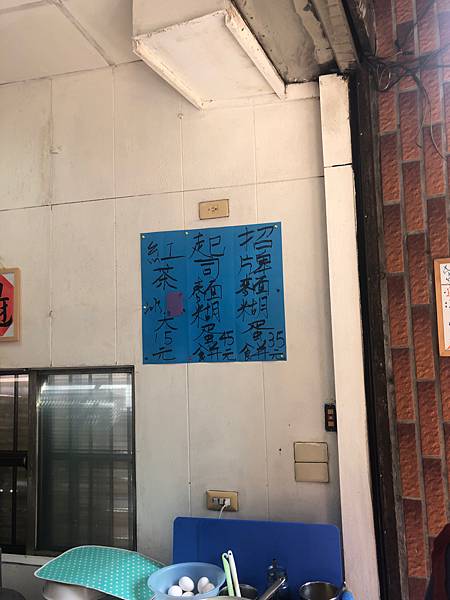 招牌麵糊蛋餅35元
起司麵糊蛋餅45元
紅茶冰大15元